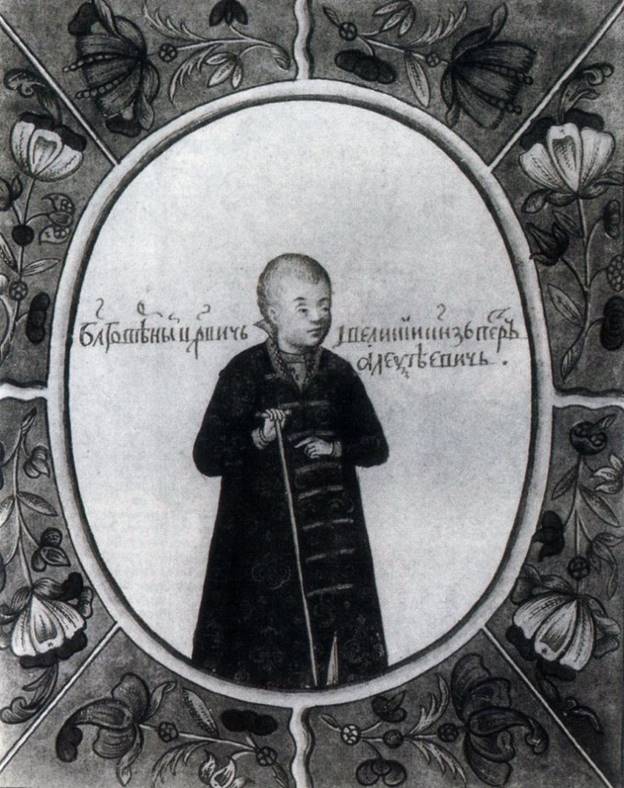 бл҃говѣрны црвичь i велики кнзь петръ
алеѯѣевичь .